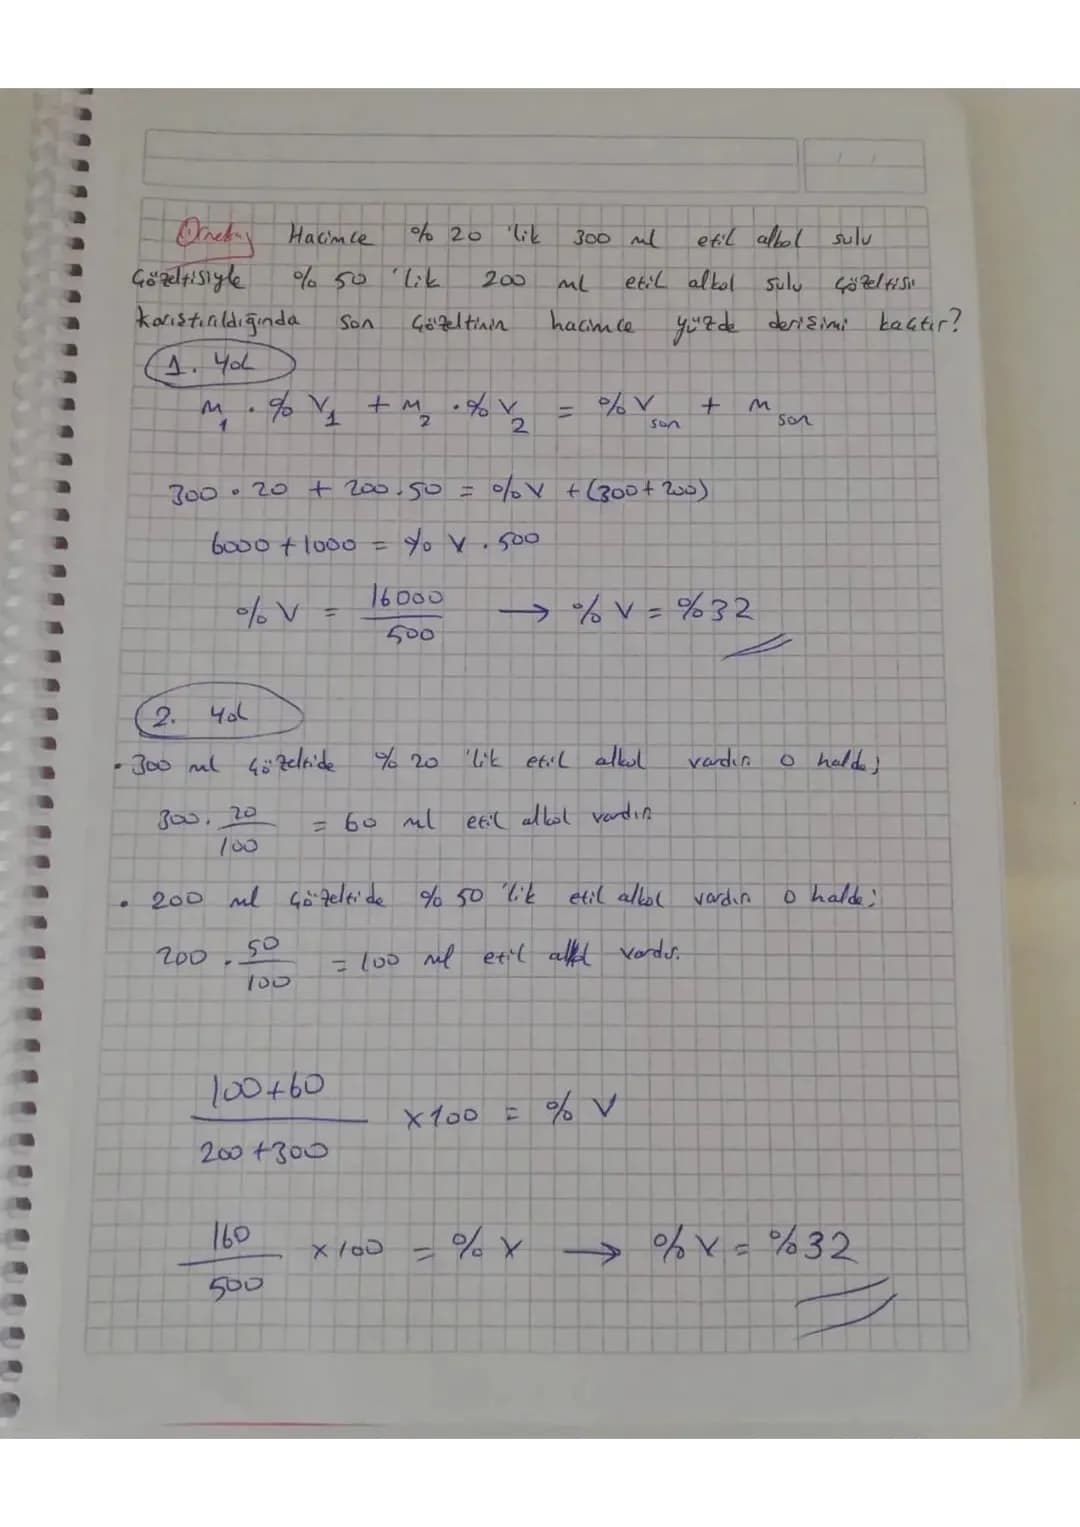 Örnek; Hacimce % 20 'lik 300 ml etil alkol sulu
çözeltisiyle % 50 'lik 200 ml etil alkol sulu çözeltisi
karıştırıldığında son çözeltinin hacimce yüzde derişimi kaçtır?
1. Yol
M₁ . % V₁ + M₂ . % V₂ = % V son + M son
300 . 20 + 200 . 50 = % V + (300 + 200)
6000 + 1000 = % V . 500
% V = 16000 / 500 → % V = %32
2. Yol
• 300 ml çözeltide % 20 'lik etil alkol vardır o halde;
300 . 20 / 100 = 60 ml etil alkol vardır
• 200 ml çözeltide % 50 'lik etil alkol vardır o halde;
200 . 50 / 100 = 100 ml etil alkol vardır.
100 + 60 / 200 + 300 x 100 = % V
160 / 500 x 100 = % V → % V = %32